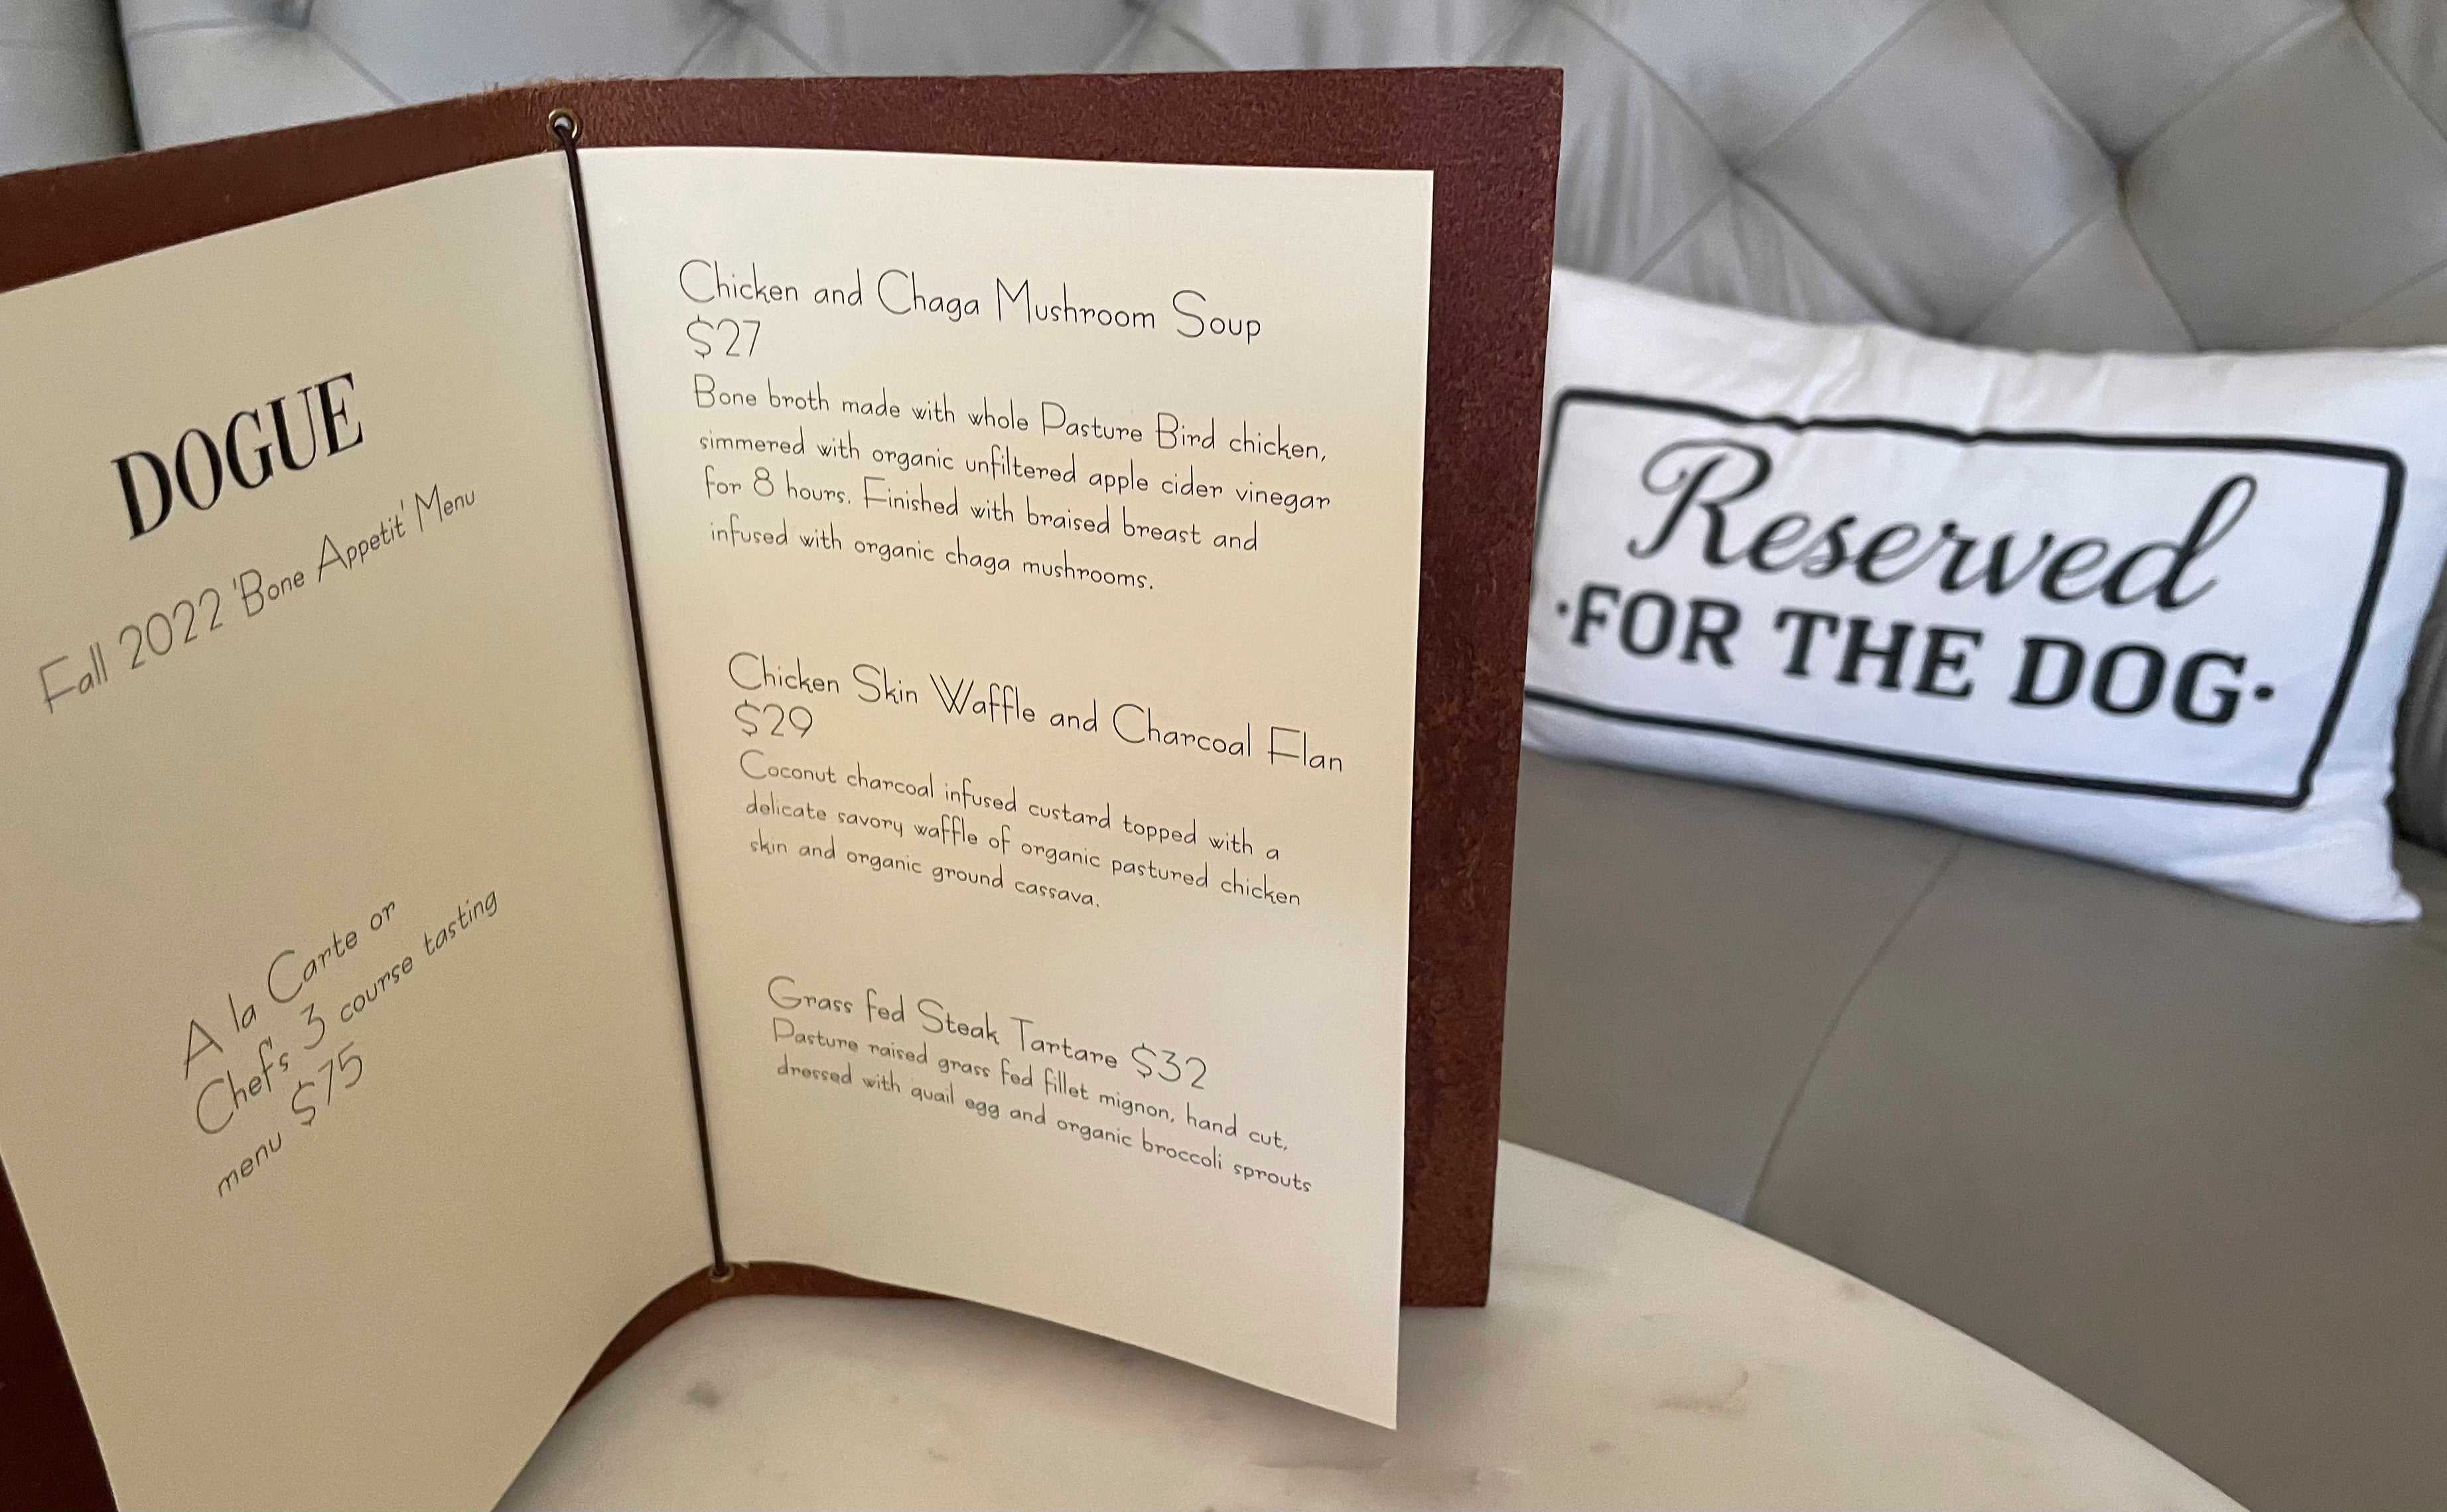 DOGUE
Fall 2022 'Bone Appetit' Menu
A la Carte or
Chef's 3 course tasting
menu $75
Chicken and Chaga Mushroom Soup
$27
Bone broth made with whole Pasture Bird chicken,
simmered with organic unfiltered apple cider vinegar
for 8 hours. Finished with braised breast and
infused with organic chaga mushrooms.
Chicken Skin Waffle and Charcoal Flan
$29
Coconut charcoal infused custard topped with a
delicate savory waffle of organic pastured chicken
skin and organic ground cassava.
Grass fed Steak Tartare $32
Pasture raised grass fed fillet mignon, hand cut,
dressed with quail egg and organic broccoli sprouts
Reserved
·FOR THE DOG·